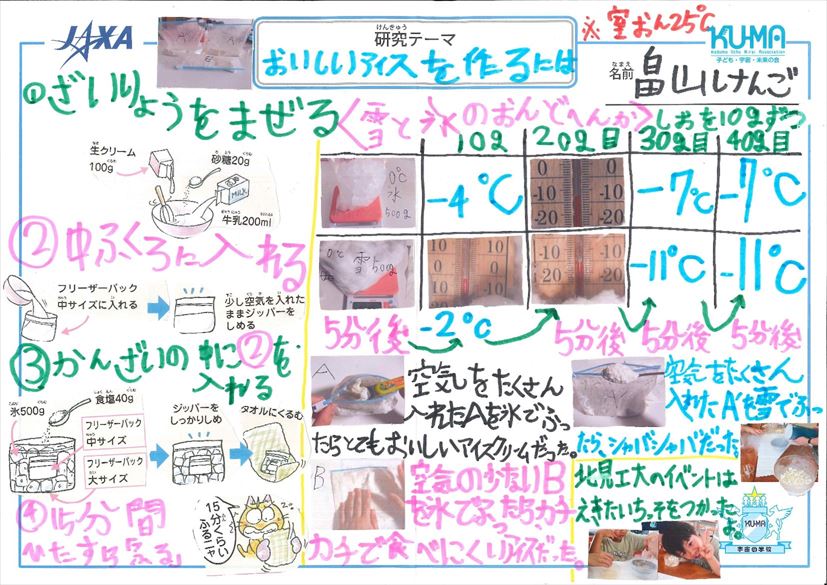 JAXA
研究テーマ
けんきゅう
おいしいアイスを作るには
※室おん25℃
KU-MA
子ども・宇宙・未来の会
名前
なまえ
畠山けんご
①ざいりょうをまぜる
生クリーム
100g
砂糖20g
牛乳200ml
MILK
②中ふくろに入れる
フリーザーパック
中サイズに入れる
少し空気を入れた
ままジッパーを
しめる
③かんざいの中に②を
入れる
氷500g
食塩40g
フリーザーパック
中サイズ
フリーザーパック
大サイズ
ジッパーを
しっかりしめ
タオルにくるむ
④15分間
ひたすらふる
15分くらい
ふるニャ
〈雪と氷のおんどへんか〉しおを10gずつ
10g
20g目
30g目
40g目
0℃
氷
500g
-4℃
-7℃
-7℃
0℃
雪
500g
-11℃
-11℃
5分後
-2℃
5分後
5分後
5分後
A
空気をたくさん
入れたAを氷でふっ
たらとてもおいしいアイスクリームだった。
A'
空気をたくさん
入れたA'を雪でふっ
たら、シャバシャバだった。
B
空気の少ないB
を氷でふったら、カチ
カチで食べにくいアイスだった。
北見工大のイベントは
えきたいちっそをつかったよ。
KU-MA
宇宙の学校